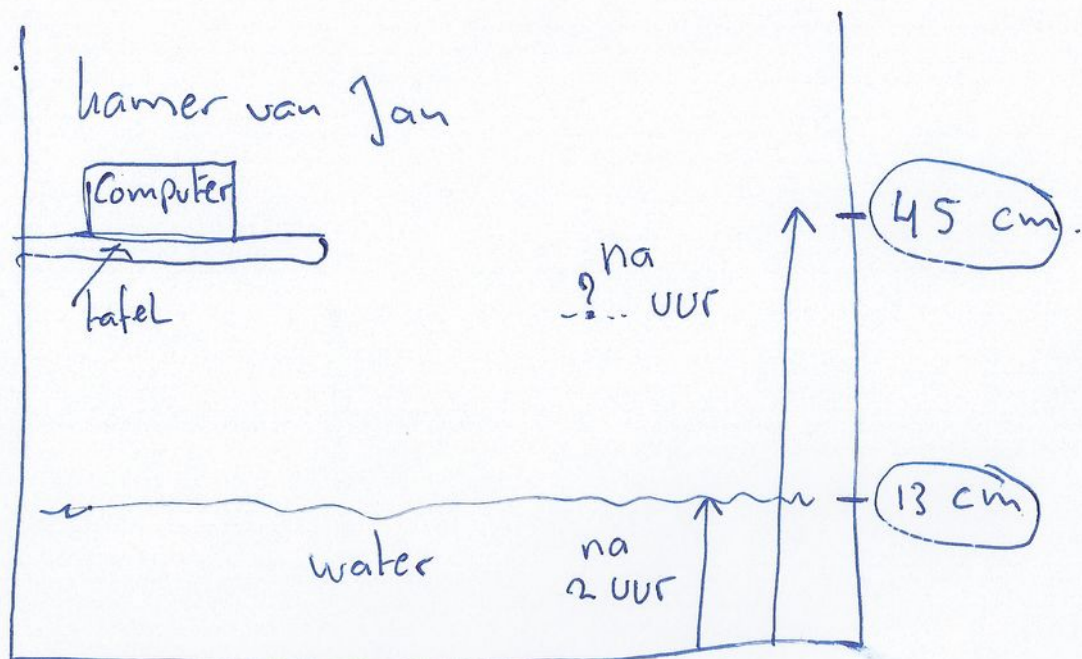 kamer van Jan
Computer
tafel
na
..?.. uur
45 cm.
water
na
2 uur
13 cm